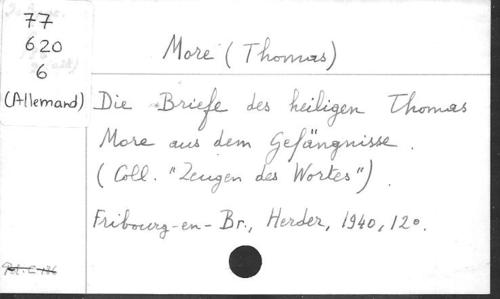 77
620
6
(Allemand)
More (Thomas)
Die Briefe des heiligen Thomas
More aus dem Gefängnisse.
(Coll. "Zeugen des Wortes").
Fribourg-en-Br., Herder, 1940, 12o.